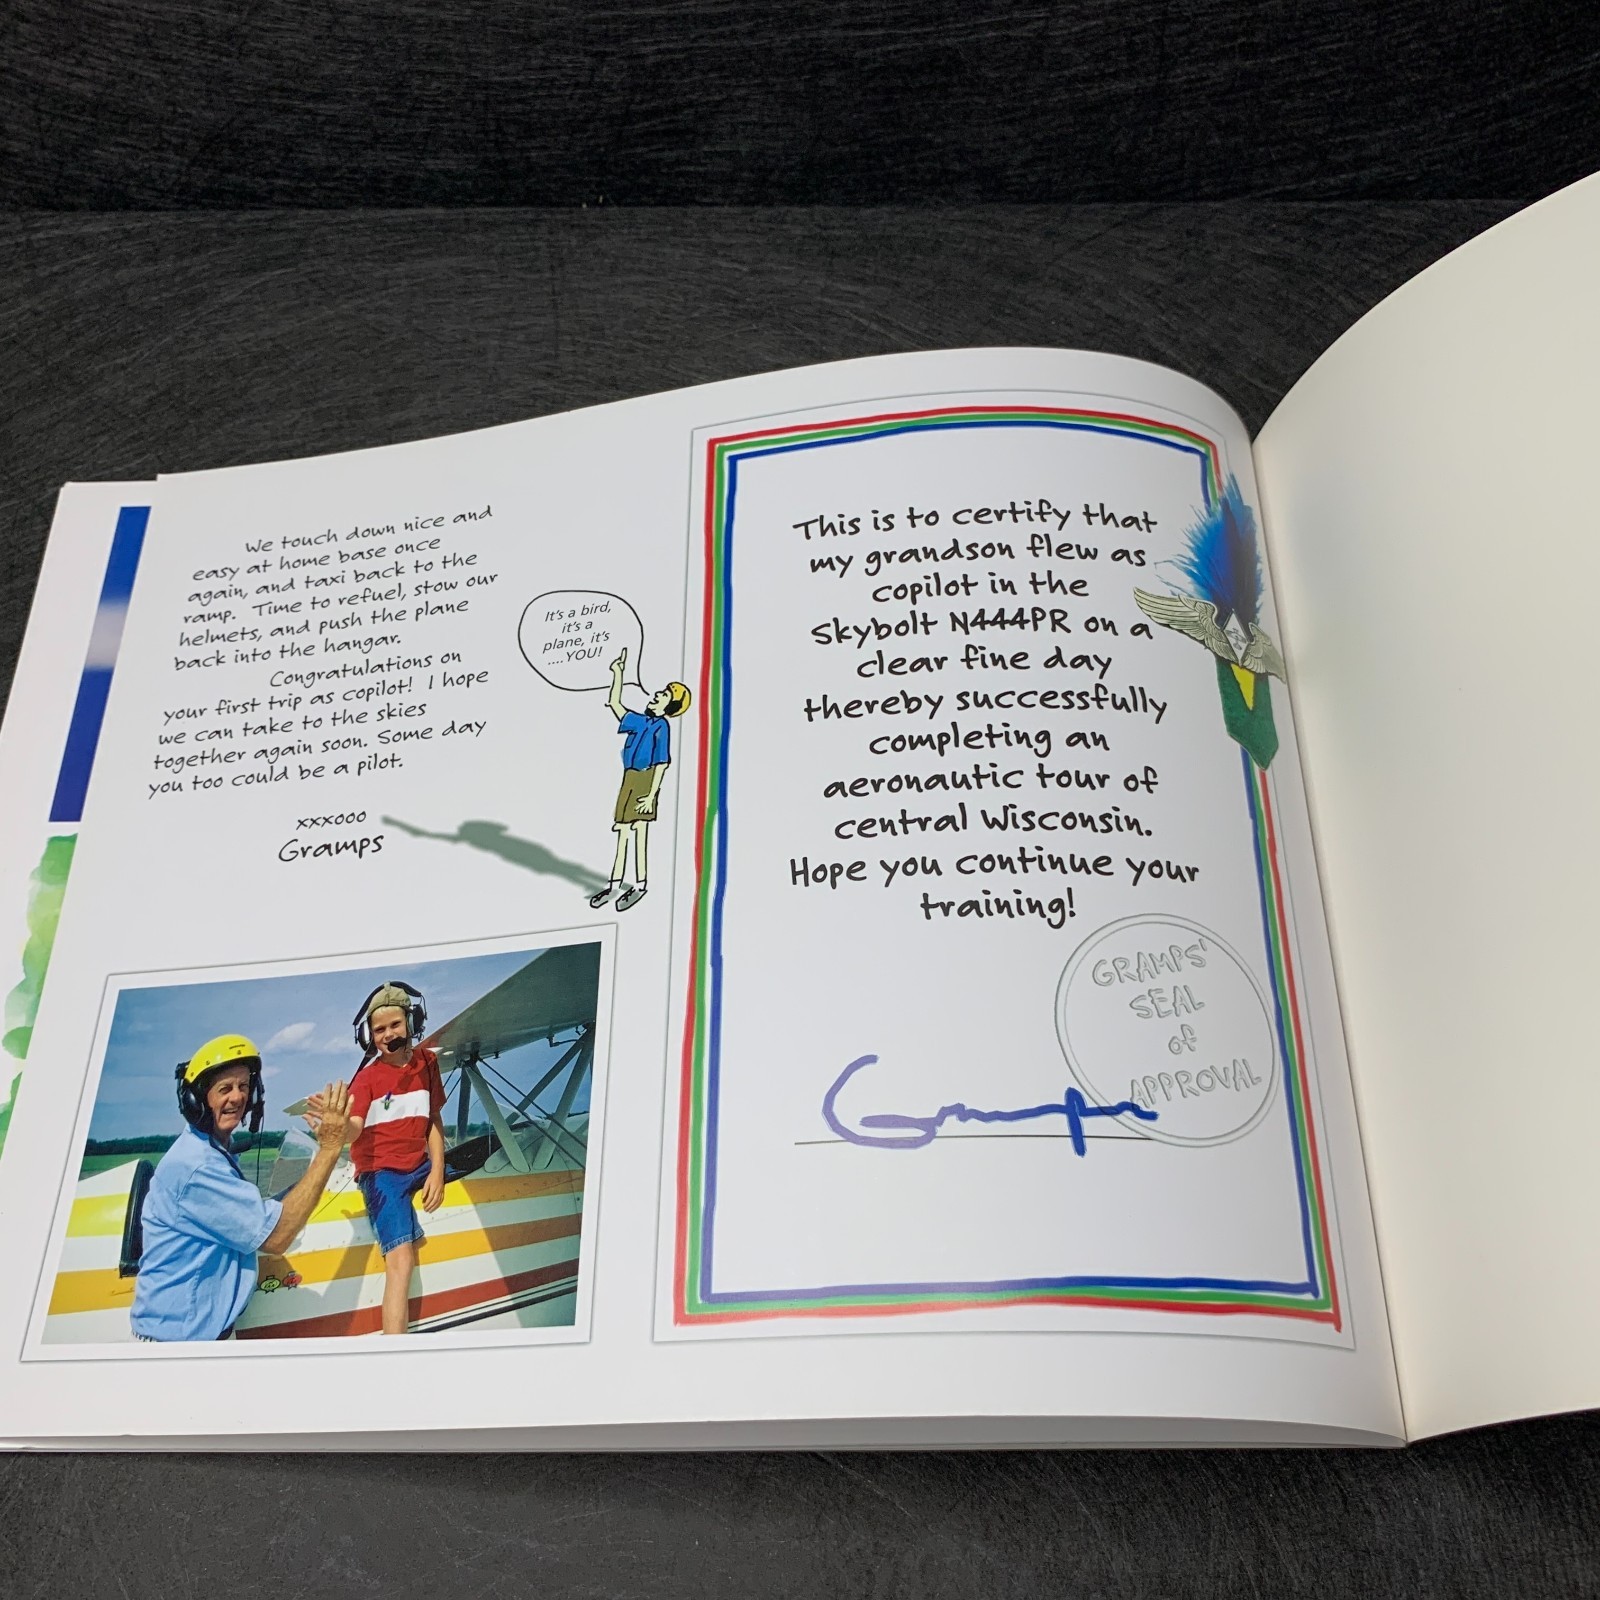 We touch down nice and
easy at home base once
again, and taxi back to the
ramp. Time to refuel, stow our
helmets, and push the plane
back into the hangar.
Congratulations on
your first trip as copilot! I hope
we can take to the skies
together again soon. Some day
you too could be a pilot.
xxxooo
Gramps
It's a bird,
it's a
plane, it's
....YOU!
This is to certify that
my grandson flew as
copilot in the
Skybolt N444PR on a
clear fine day
thereby successfully
completing an
aeronautic tour of
central Wisconsin.
Hope you continue your
training!
GRAMPS'
SEAL
of
APPROVAL
Gramps